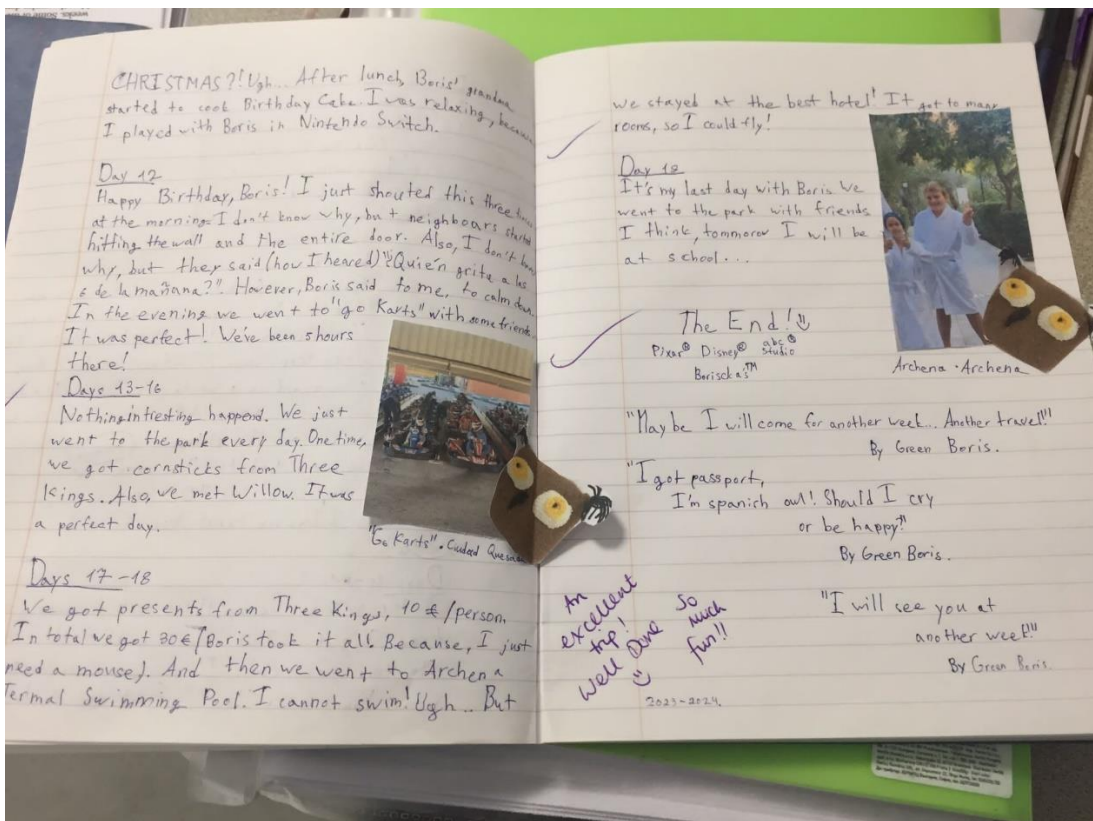 CHRISTMAS?! Ugh... After lunch, Boris' grandma
started to cook Birthday Cake. I was relaxing, because
I played with Boris in Nintendo Switch.
Day 12
Happy Birthday, Boris! I just shouted this three times
at the morning. I don't know why, but neighbours started
hitting the wall and the entire door. Also, I don't know
why, but they said (how I heared) "¿Quién grita a las
6 de la mañana?". However, Boris said to me, to calm down.
In the evening we went to "go Karts" with some friends.
It was perfect! We've been 5 hours
there!
Days 13-16
Nothing intresting happend. We just
went to the park every day. One time,
we got cornsticks from Three
Kings. Also, we met Willow. It was
a perfect day.
"Go Karts". Ciudad Quesada
Days 17-18
We got presents from Three Kings, 10 €/person.
In total we got 30€ (Boris took it all. Because, I just
need a mouse). And then we went to Archena
Termal Swimming Pool. I cannot swim! Ugh.. But
we stayed at the best hotel! It got to many
rooms, so I could fly!
Day 19
It's my last day with Boris. We
went to the park with friends
I think, tommorow I will be
at school...
The End!
Pixar® Disney® abc® studio
Borisck'as™
Archena . Archena
"Maybe I will come for another week... Another travel!"
By Green Boris.
"I got passport,
I'm spanich owl! Should I cry
or be happy?"
By Green Boris.
"I will see you at
another week!"
By Green Boris.
An
excellent
trip!
Well Done
So
much
fun!!
2023-2024.